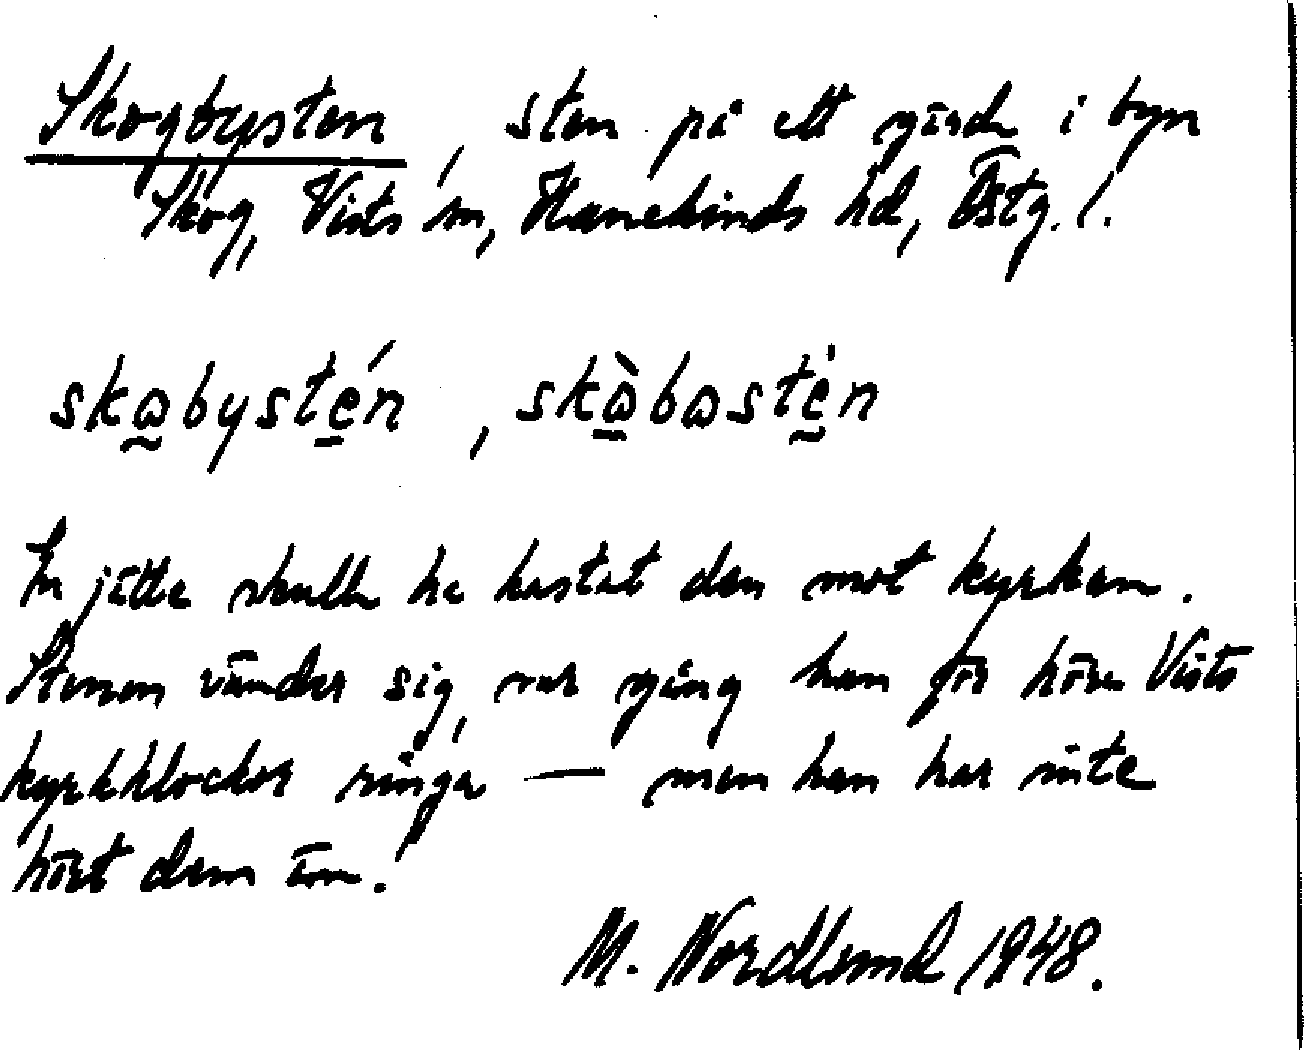 Skogbysten, sten på ett gärde i byn
Skog, Vists sn, Hanekinds hd, Östg. l.
skɷ̰bysté̠n, skɷ̠̀bɷstè̠n
En jätte skulle ha kastat den mot kyrkan.
Stenen vänder sig, var gång han får höra Vists
kyrkklockor ringa — men han har inte
hört dem än!
M. Nordlund 1948.